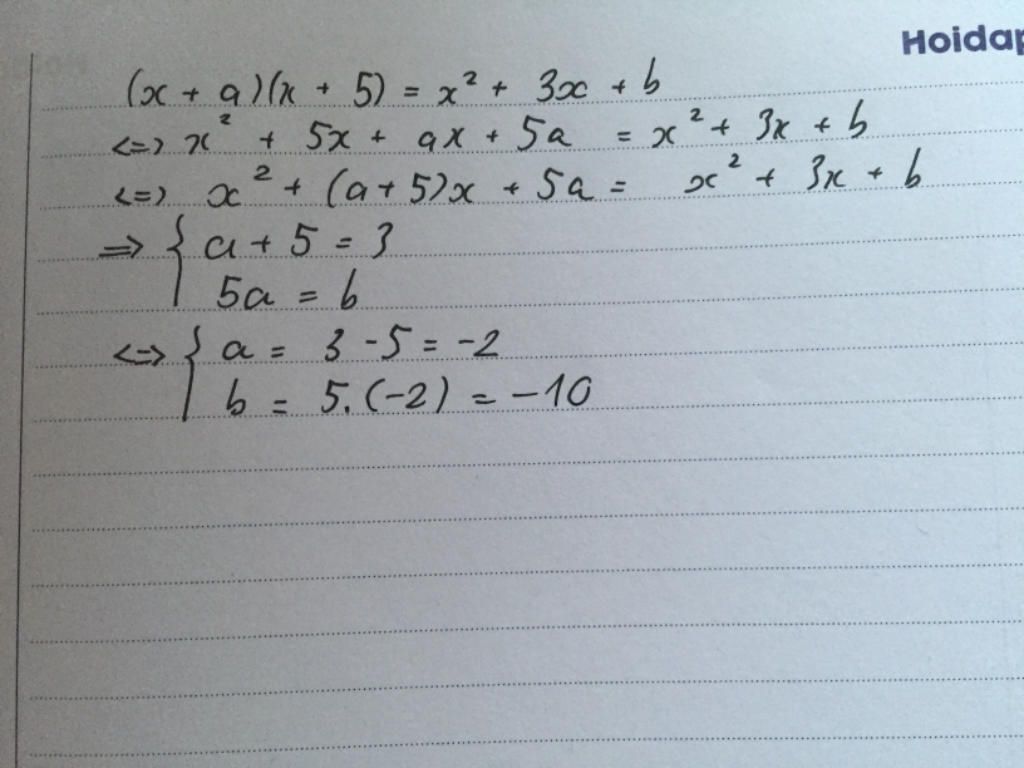 Hoidap
(x + a)(x + 5) = x² + 3x + b
<=> x² + 5x + ax + 5a = x² + 3x + b
<=> x² + (a+5)x + 5a = x² + 3x + b
=> { a + 5 = 3
5a = b
<=> { a = 3 - 5 = -2
b = 5.(-2) = -10